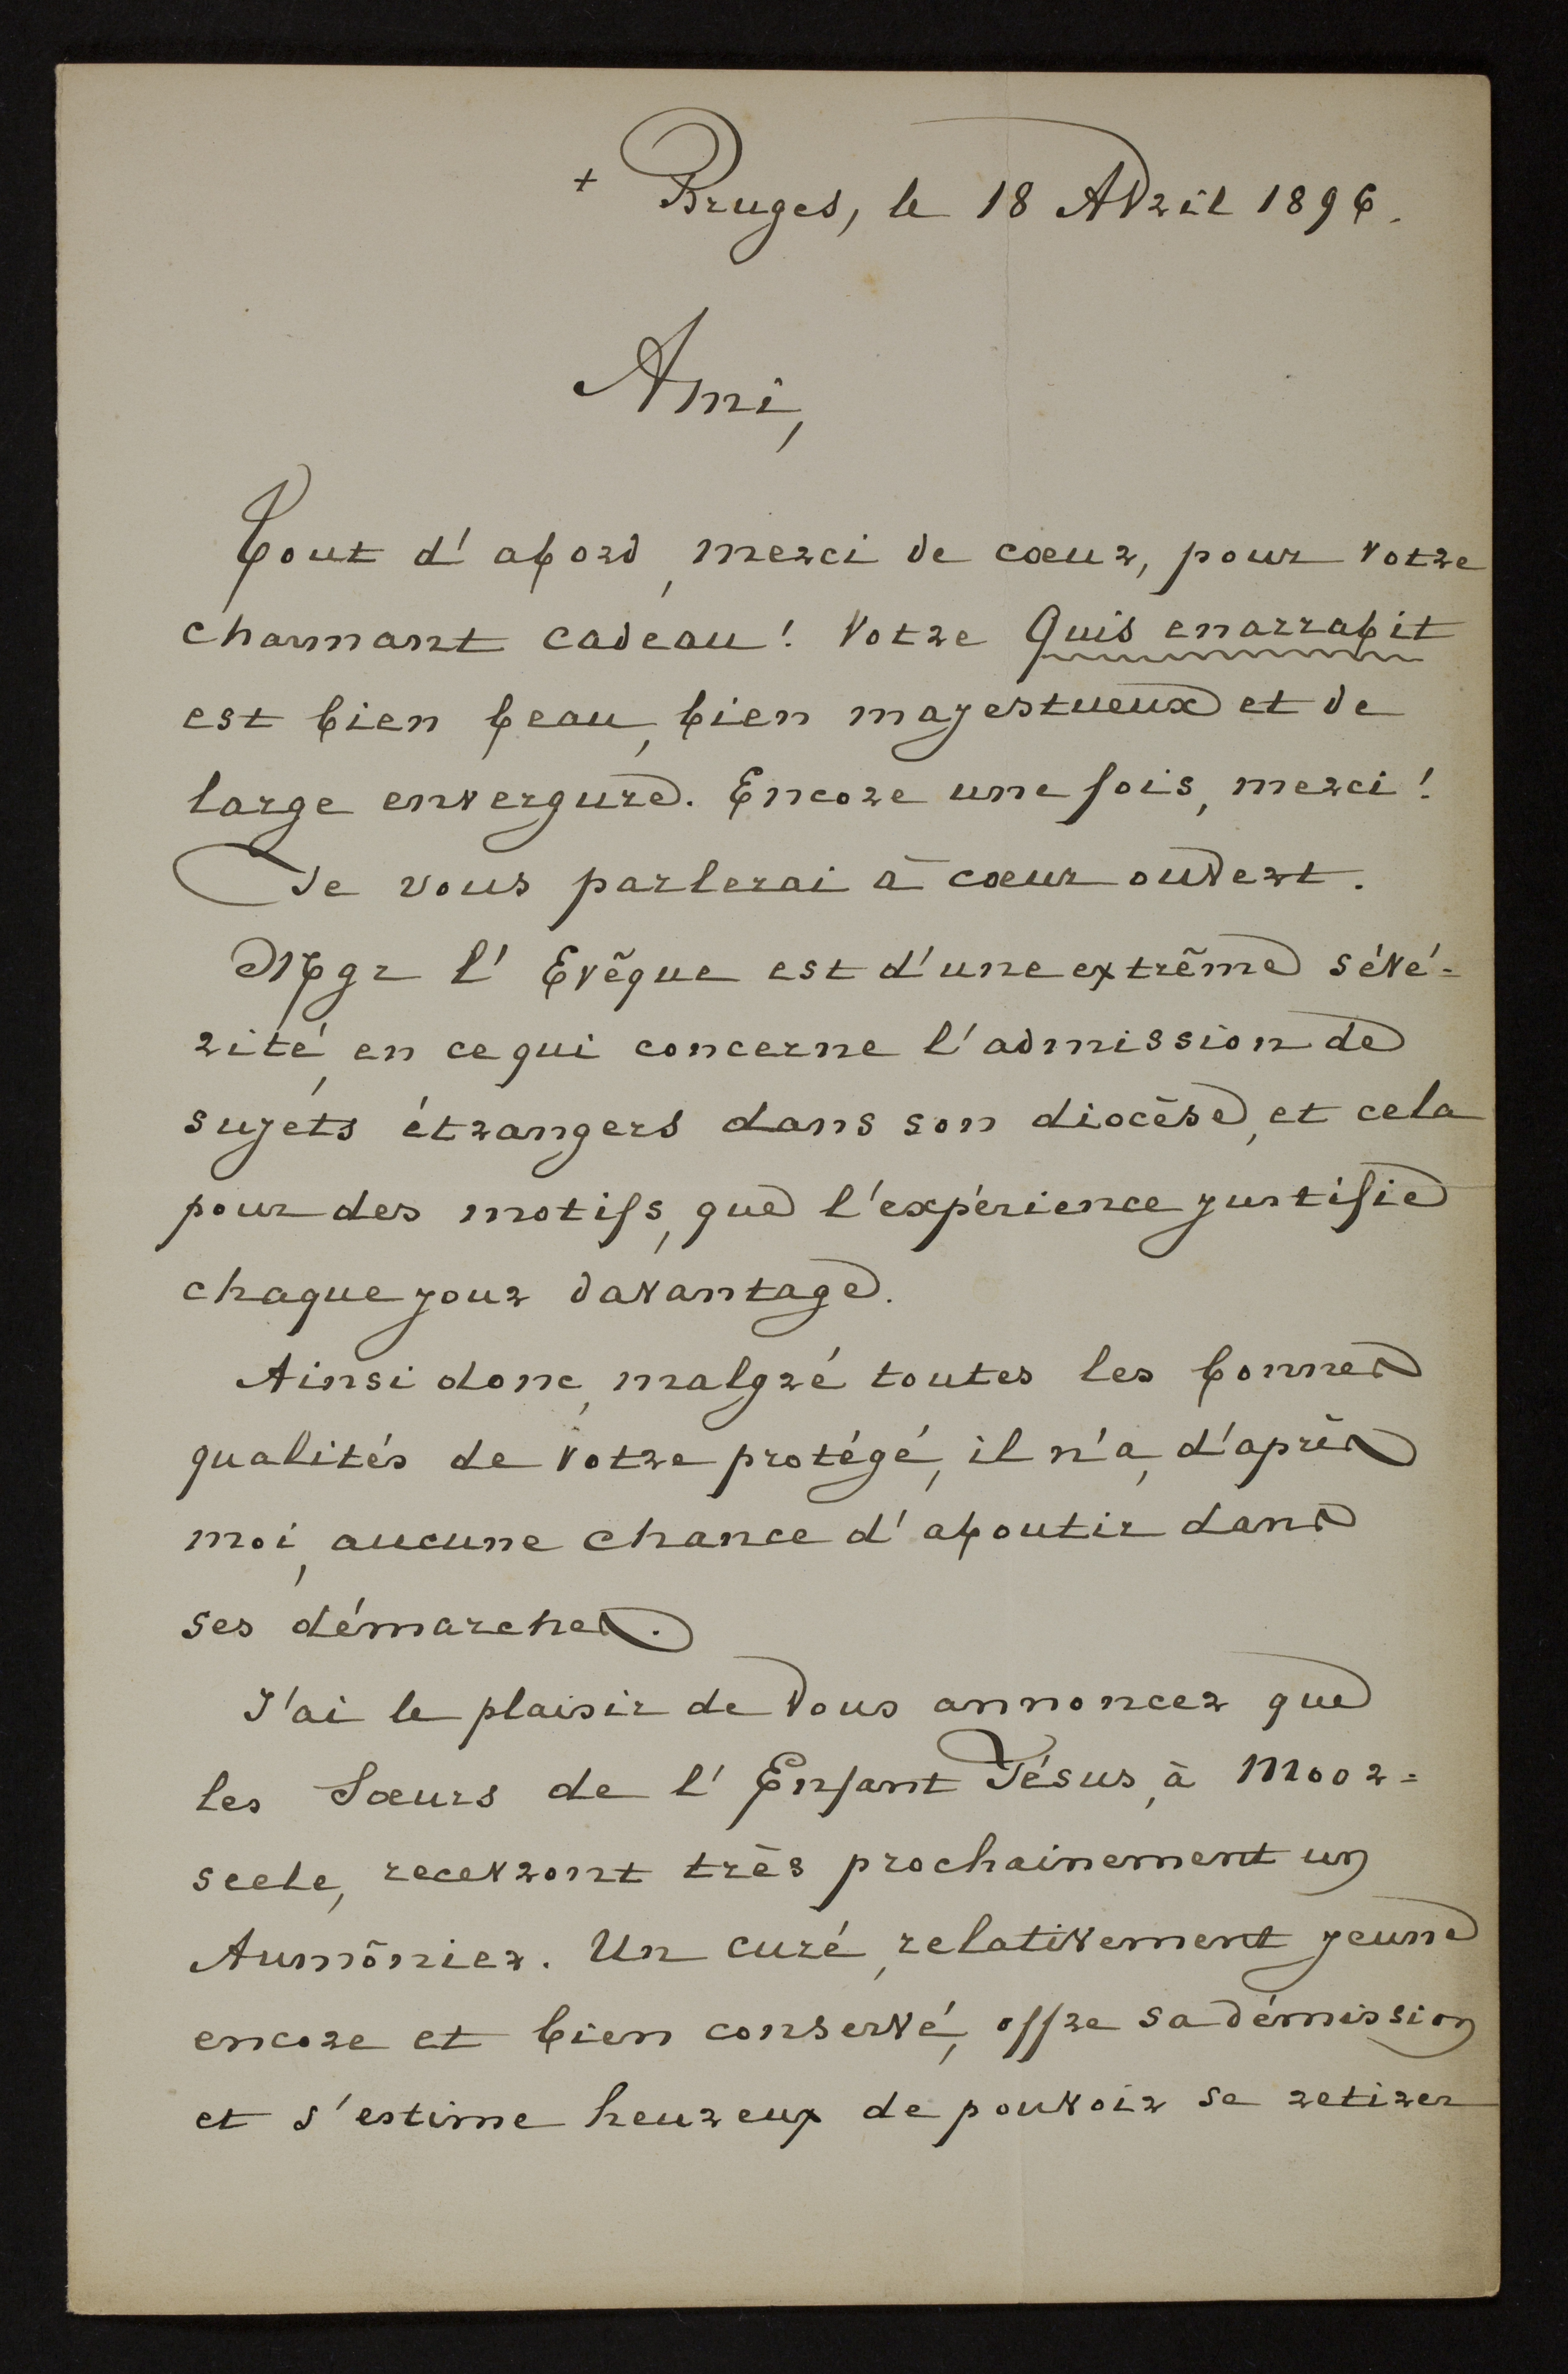 + Bruges, le 18 Avril 1896.
Ami,
Tout d'abord, merci de cœur, pour votre
charmant cadeau! Votre Quis enarrabit
est bien beau, bien majestueux et de
large envergure. Encore une fois, merci!
Je vous parlerai à cœur ouvert.
Mgr l'Evêque est d'une extrême sévé=
rité, en ce qui concerne l'admission de
sujets étrangers dans son diocèse, et cela
pour des motifs, que l'expérience justifie
chaque jour davantage.
Ainsi donc, malgré toutes les bonnes
qualités de votre protégé, il n'a, d'après
moi, aucune chance d'aboutir dans
ses démarches.
J'ai le plaisir de vous annoncer que
les Sœurs de l'Enfant Jésus, à Moor=
seele, recevront très prochainement un
Aumônier. Un curé, relativement jeune
encore et bien conservé, offre sa démission
et s'estime heureux de pouvoir se retirer